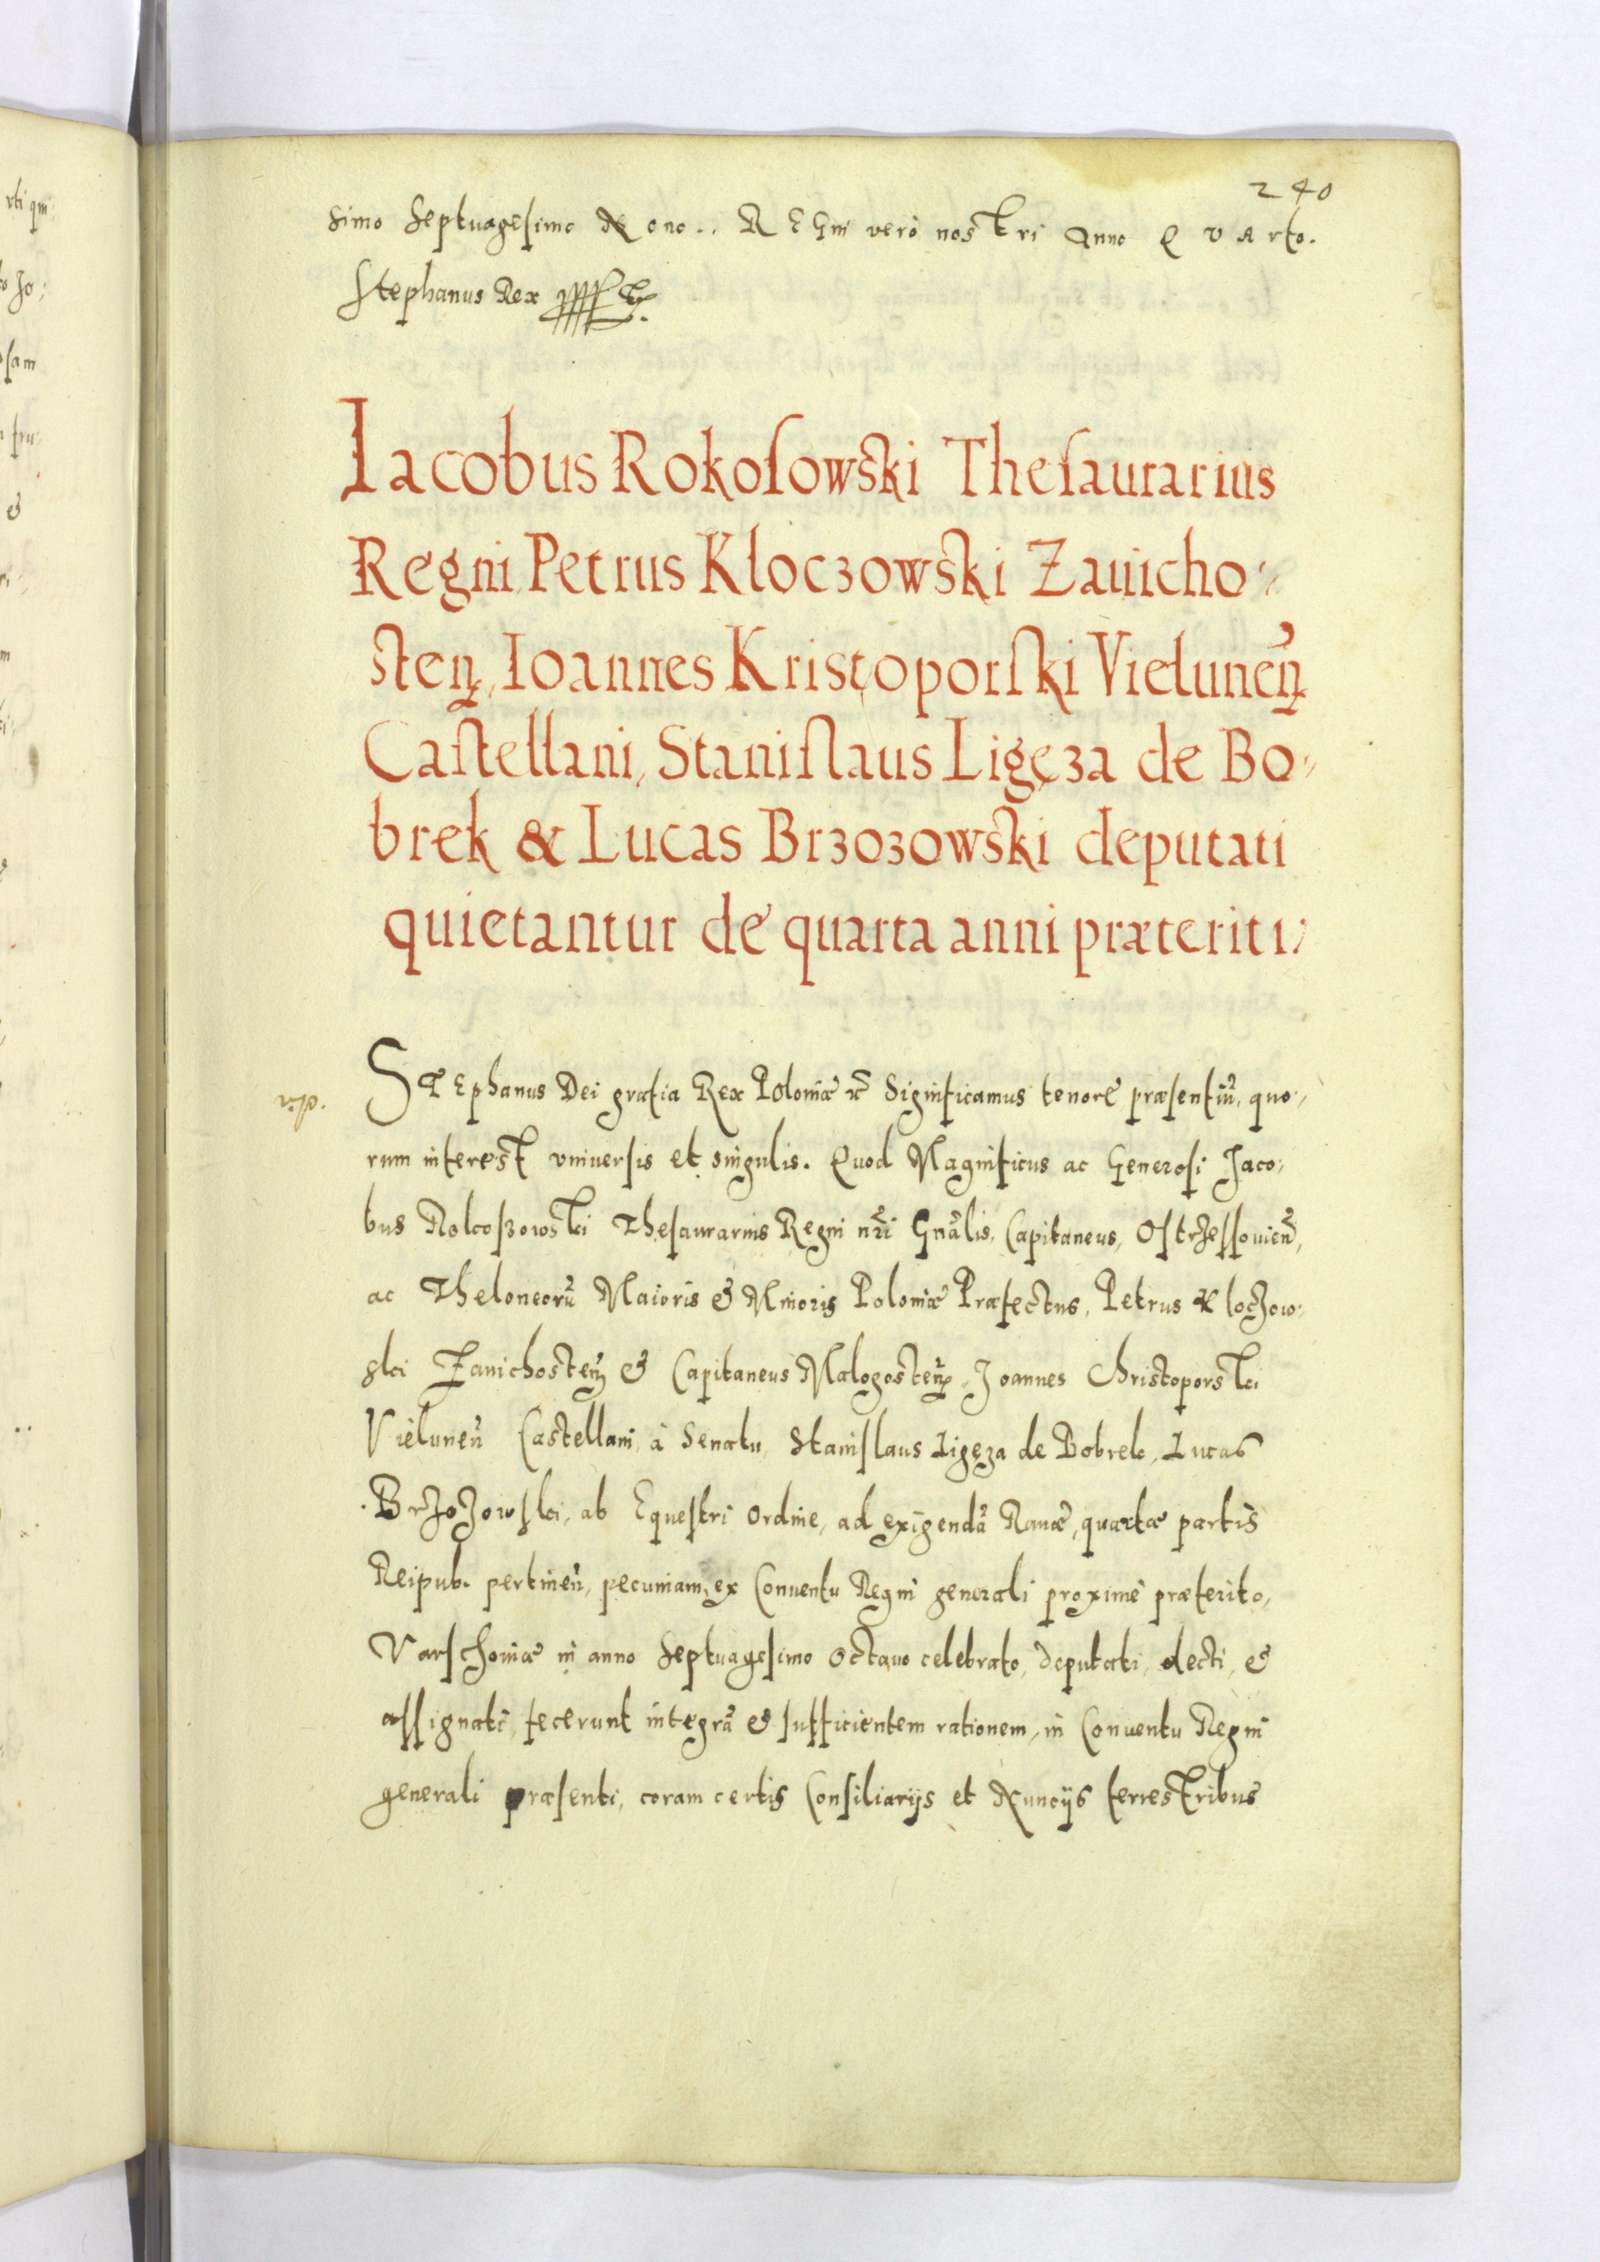 240
simo Septuagesimo Nono.. REGni verò nostri Anno QVArto.
Stephanus Rex
Iacobus Rokoſowski Theſaurarius
Regni, Petrus Kloczowski Zauicho-
steñ, Ioannes Kristoporſki Vieluneñ
Caſtellani, Staniſlaus Ligęza de Bo-
brek & Lucas Brzozowski deputati
quietantur de quarta anni præteriti.
STEphanus Dei gratia Rex Poloniæ &c̃ Significamus tenore præsentiũ, quo-
rum interest vniuersis et singulis. Quod Magnificus ac Generosi Jaco-
bus Rokoszowski Theſaurarius Regni nr̃i Gñalis, Capitaneus, Oſtrzeſſouieñ,
ac Theloneorũ Maioris & Minoris Poloniæ Præfectus, Petrus Kloczow-
ski Zauichosteñ & Capitaneus Malogosteñ, Joannes Christoporski
Vieluneñ Castellani, à Senatu, Staniſlaus Ligęza de Bobrek, Lucas
Brzozowſki, ab Equeſtri Ordine, ad exigendã Rauæ, quartæ partis
Reipub. pertineñ, pecuniam, ex Conuentu Regni generali proximè præterito,
Varſchouiæ in anno Septuagesimo Octauo celebrato, deputati, electi, &
aſſignati, fecerunt integrã & ſufficientem rationem, in Conuentu Regni
generali præsenti, coram certis Conſiliarijs et Nuncijs terrestribus